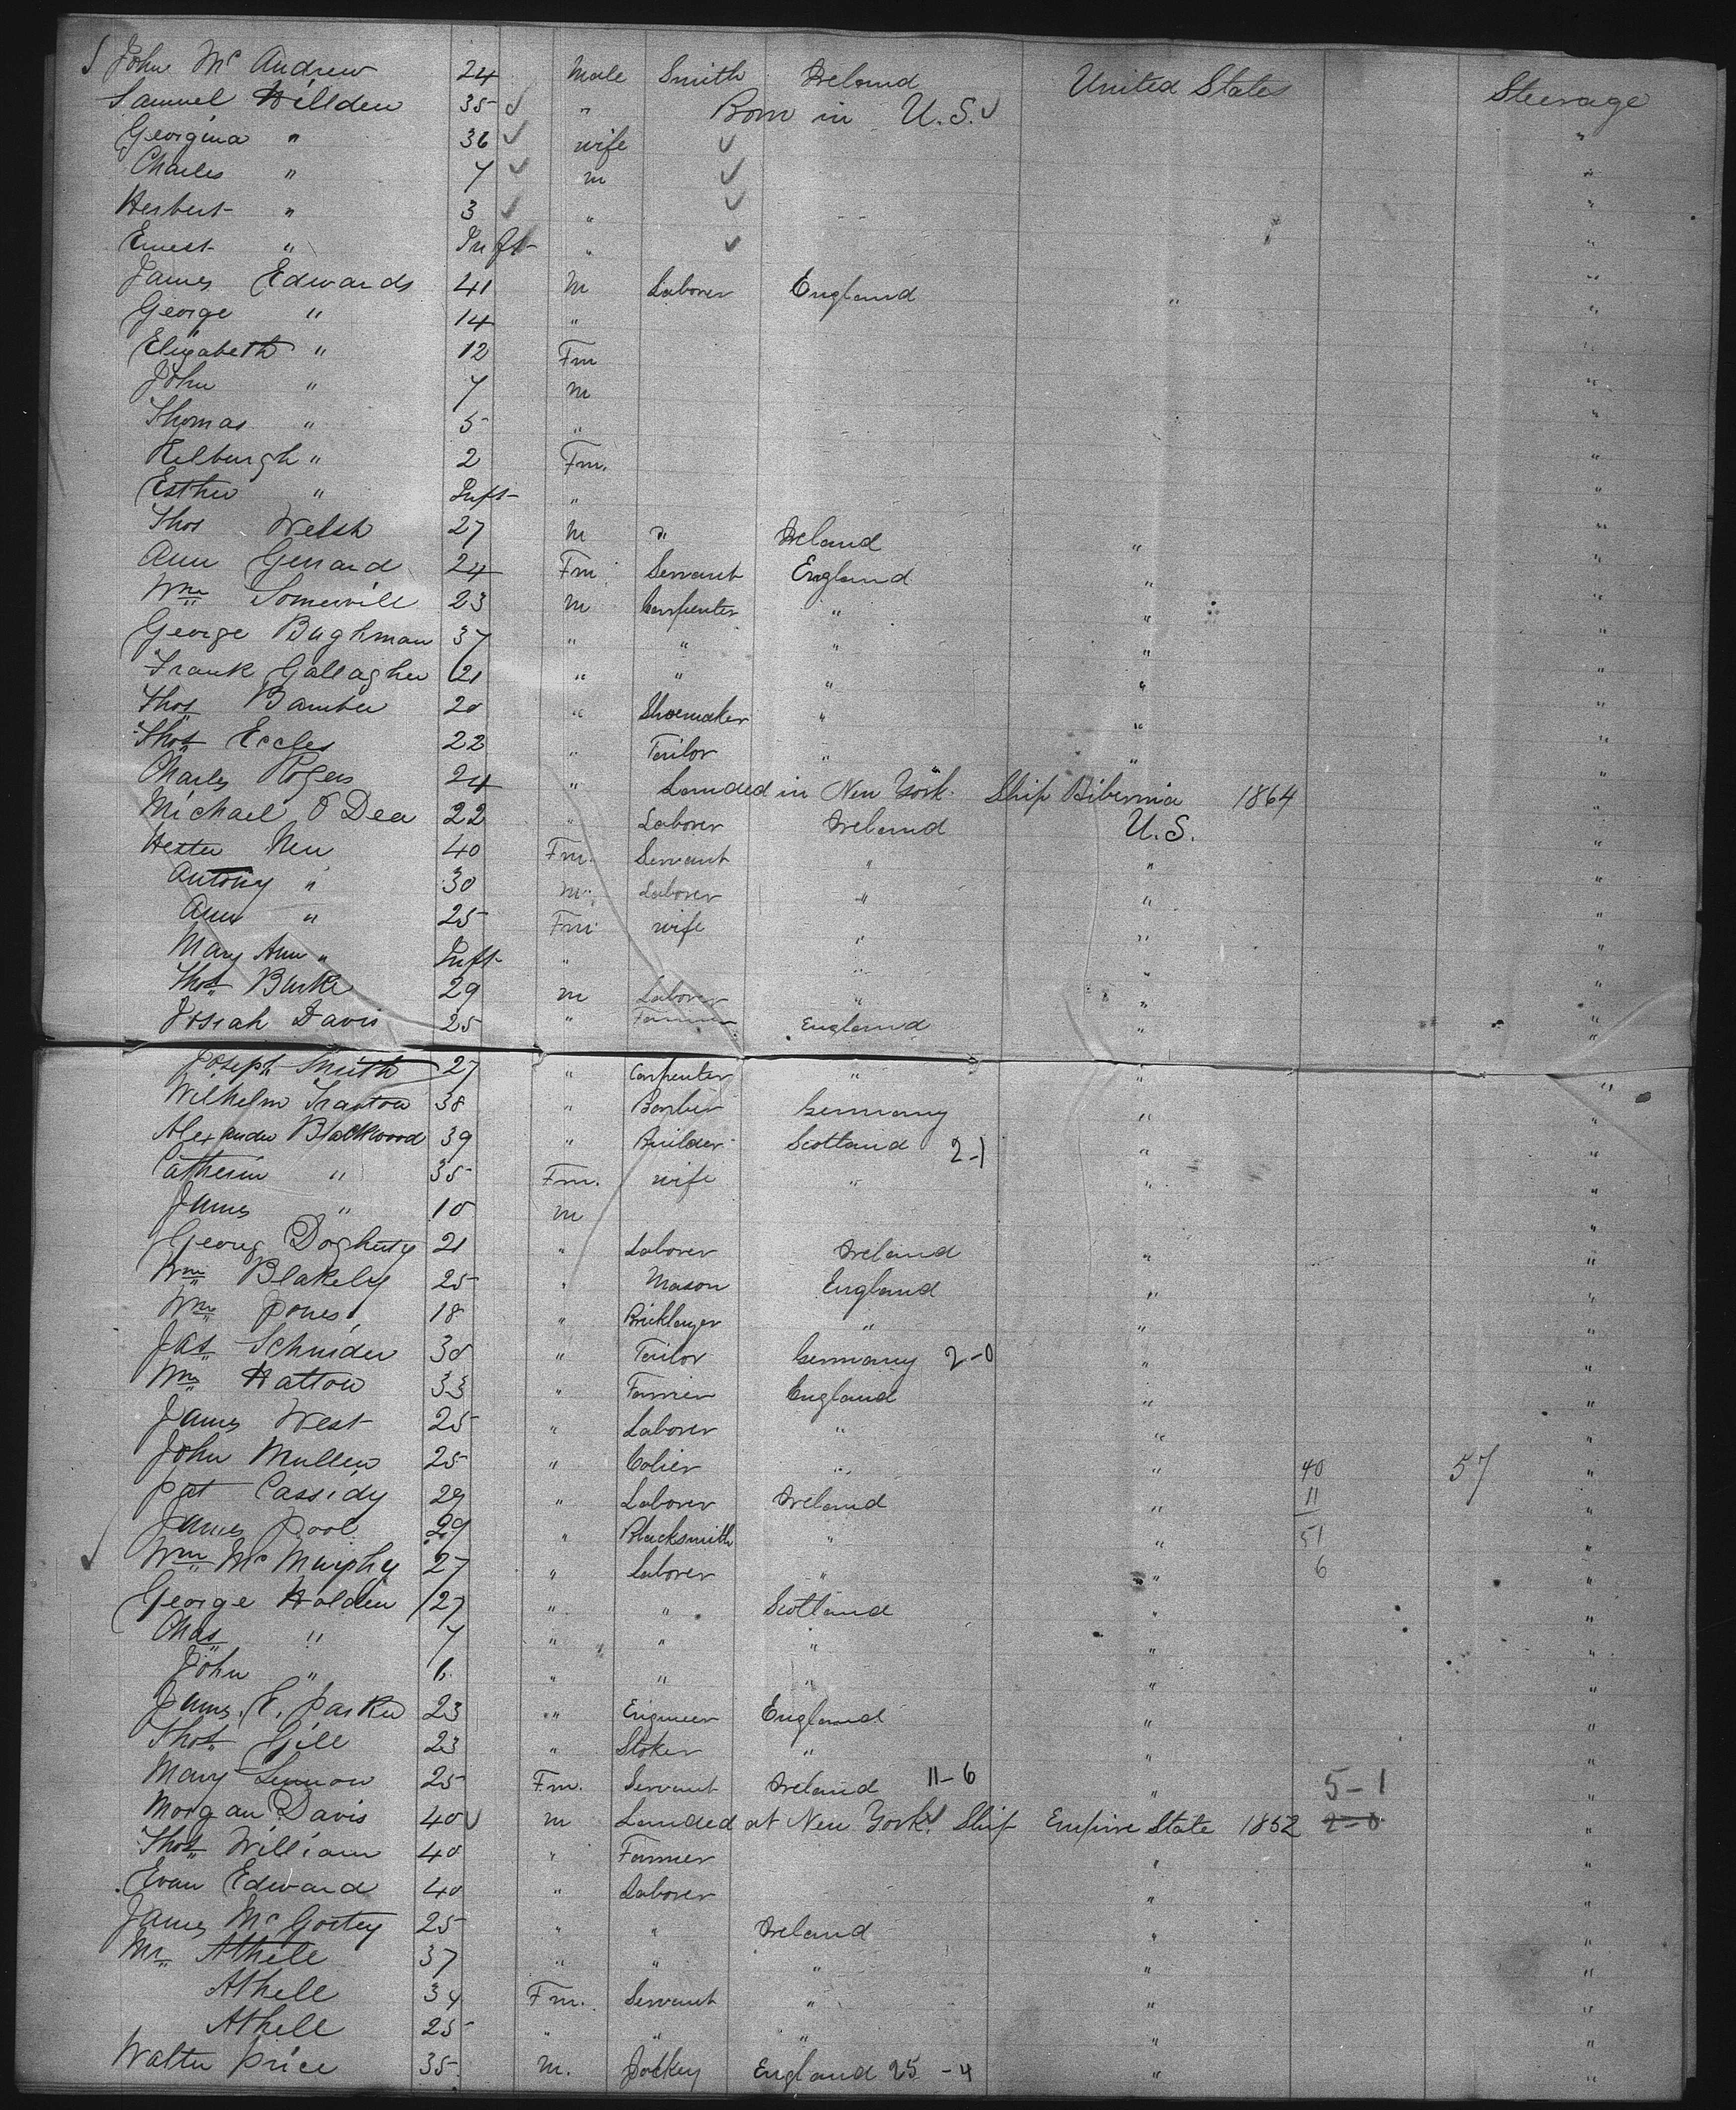 John Mc Andrew 24 Male Smith Ireland United States Steerage
Samuel Willden 35 " Born in U.S. "
Georgina " 36 wife "
Charles " 7 m "
Herbert " 3 " "
Ernest " Inft " "
James Edwards 41 m Laborer England " "
George " 14 " "
Elizabeth " 12 Fm "
John " 7 m "
Thomas " 5 " "
" 2 Fm. "
Esther " Inft "
Thos Welsh 27 m " Ireland " "
Ann Gerrard 24 Fm Servant England " "
Wm Somervill 23 m Carpenter " " "
George Baghman 37 " " " " "
Frank Gallagher 21 " " " " "
Thos Bamber 20 " Shoemaker " " "
Thos Eccles 22 " Tailor " " "
Charles Rogers 24 " Landed in New York Ship Hibernia 1864 "
Michael O Dea 22 " Laborer Ireland U.S. "
Hester Neu 40 Fm. Servant " " "
Antony " 30 m Laborer " " "
Ann " 25 Fm wife " " "
Mary Ann " Inft " " " "
Thos Burke 29 m Laborer " " "
Josiah Davis 25 " Farmer England " "
Joseph Smith 27 " Carpenter " " "
Wilhelm 38 " Barber Germany " "
Alexander Blackwood 39 " Builder Scotland 2-1 " "
Catherin " 35 Fm. wife " " "
James " 10 m "
Georg Dogherty 21 " Laborer Ireland " "
Wm Blakely 25 " Mason England " "
Wm Jones 18 " Bricklayer " " "
Jas Schnider 30 " Tailor Germany 2-0 " "
Wm Hatton 33 " Farmer England " "
James West 25 " Laborer " " "
John Mullen 25 " Colier " " 40 57 "
Pat Cassidy 29 " Laborer Ireland " 11 "
James Pool 29 " Blacksmith " " 51 "
Wm Mc Murphy 27 " Laborer " " 6 "
George Holden 27 " " Scotland " "
Chas " 7 " " " " "
John " 6 " " " " "
James. E. Parker 23 " Engineer England " "
Thos Gill 23 " Stoker " " "
Mary Lennon 25 Fm. Servant Ireland 11-6 " 5-1 "
Morgan Davis 40 m Landed at New York Ship Empire State 1852 2-0 "
Thos William 40 " Farmer " "
Evan Edward 40 " Laborer " "
James Mc Gortey 25 " " Ireland " "
Mr Athell 37 " " " " "
Athell 34 Fm. Servant " " "
Athell 25 " " " " "
Walter Price 35 m. Jockey England 25-4 " "